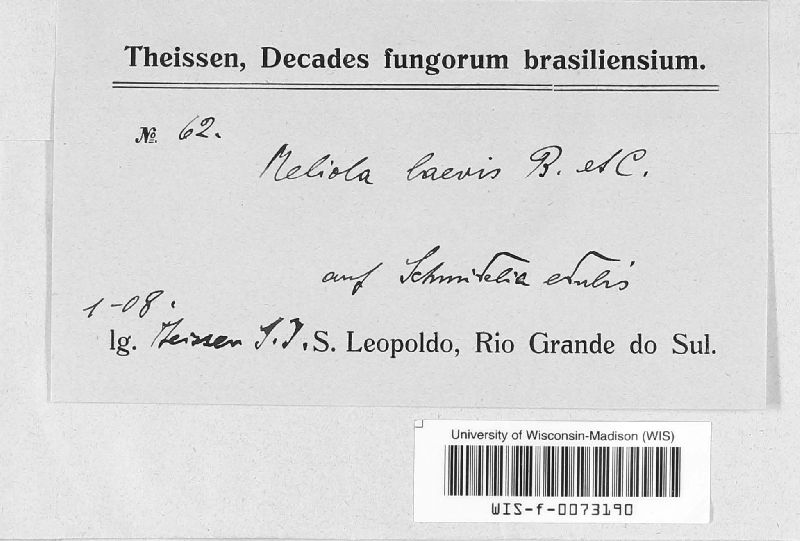 Theissen, Decades fungorum brasiliensium.
№ 62.
Meliola laevis B. et C.
auf Schmidelia edulis
1-08.
lg. Theissen S.J. S. Leopoldo, Rio Grande do Sul.
University of Wisconsin-Madison (WIS)
WIS-f-0073190